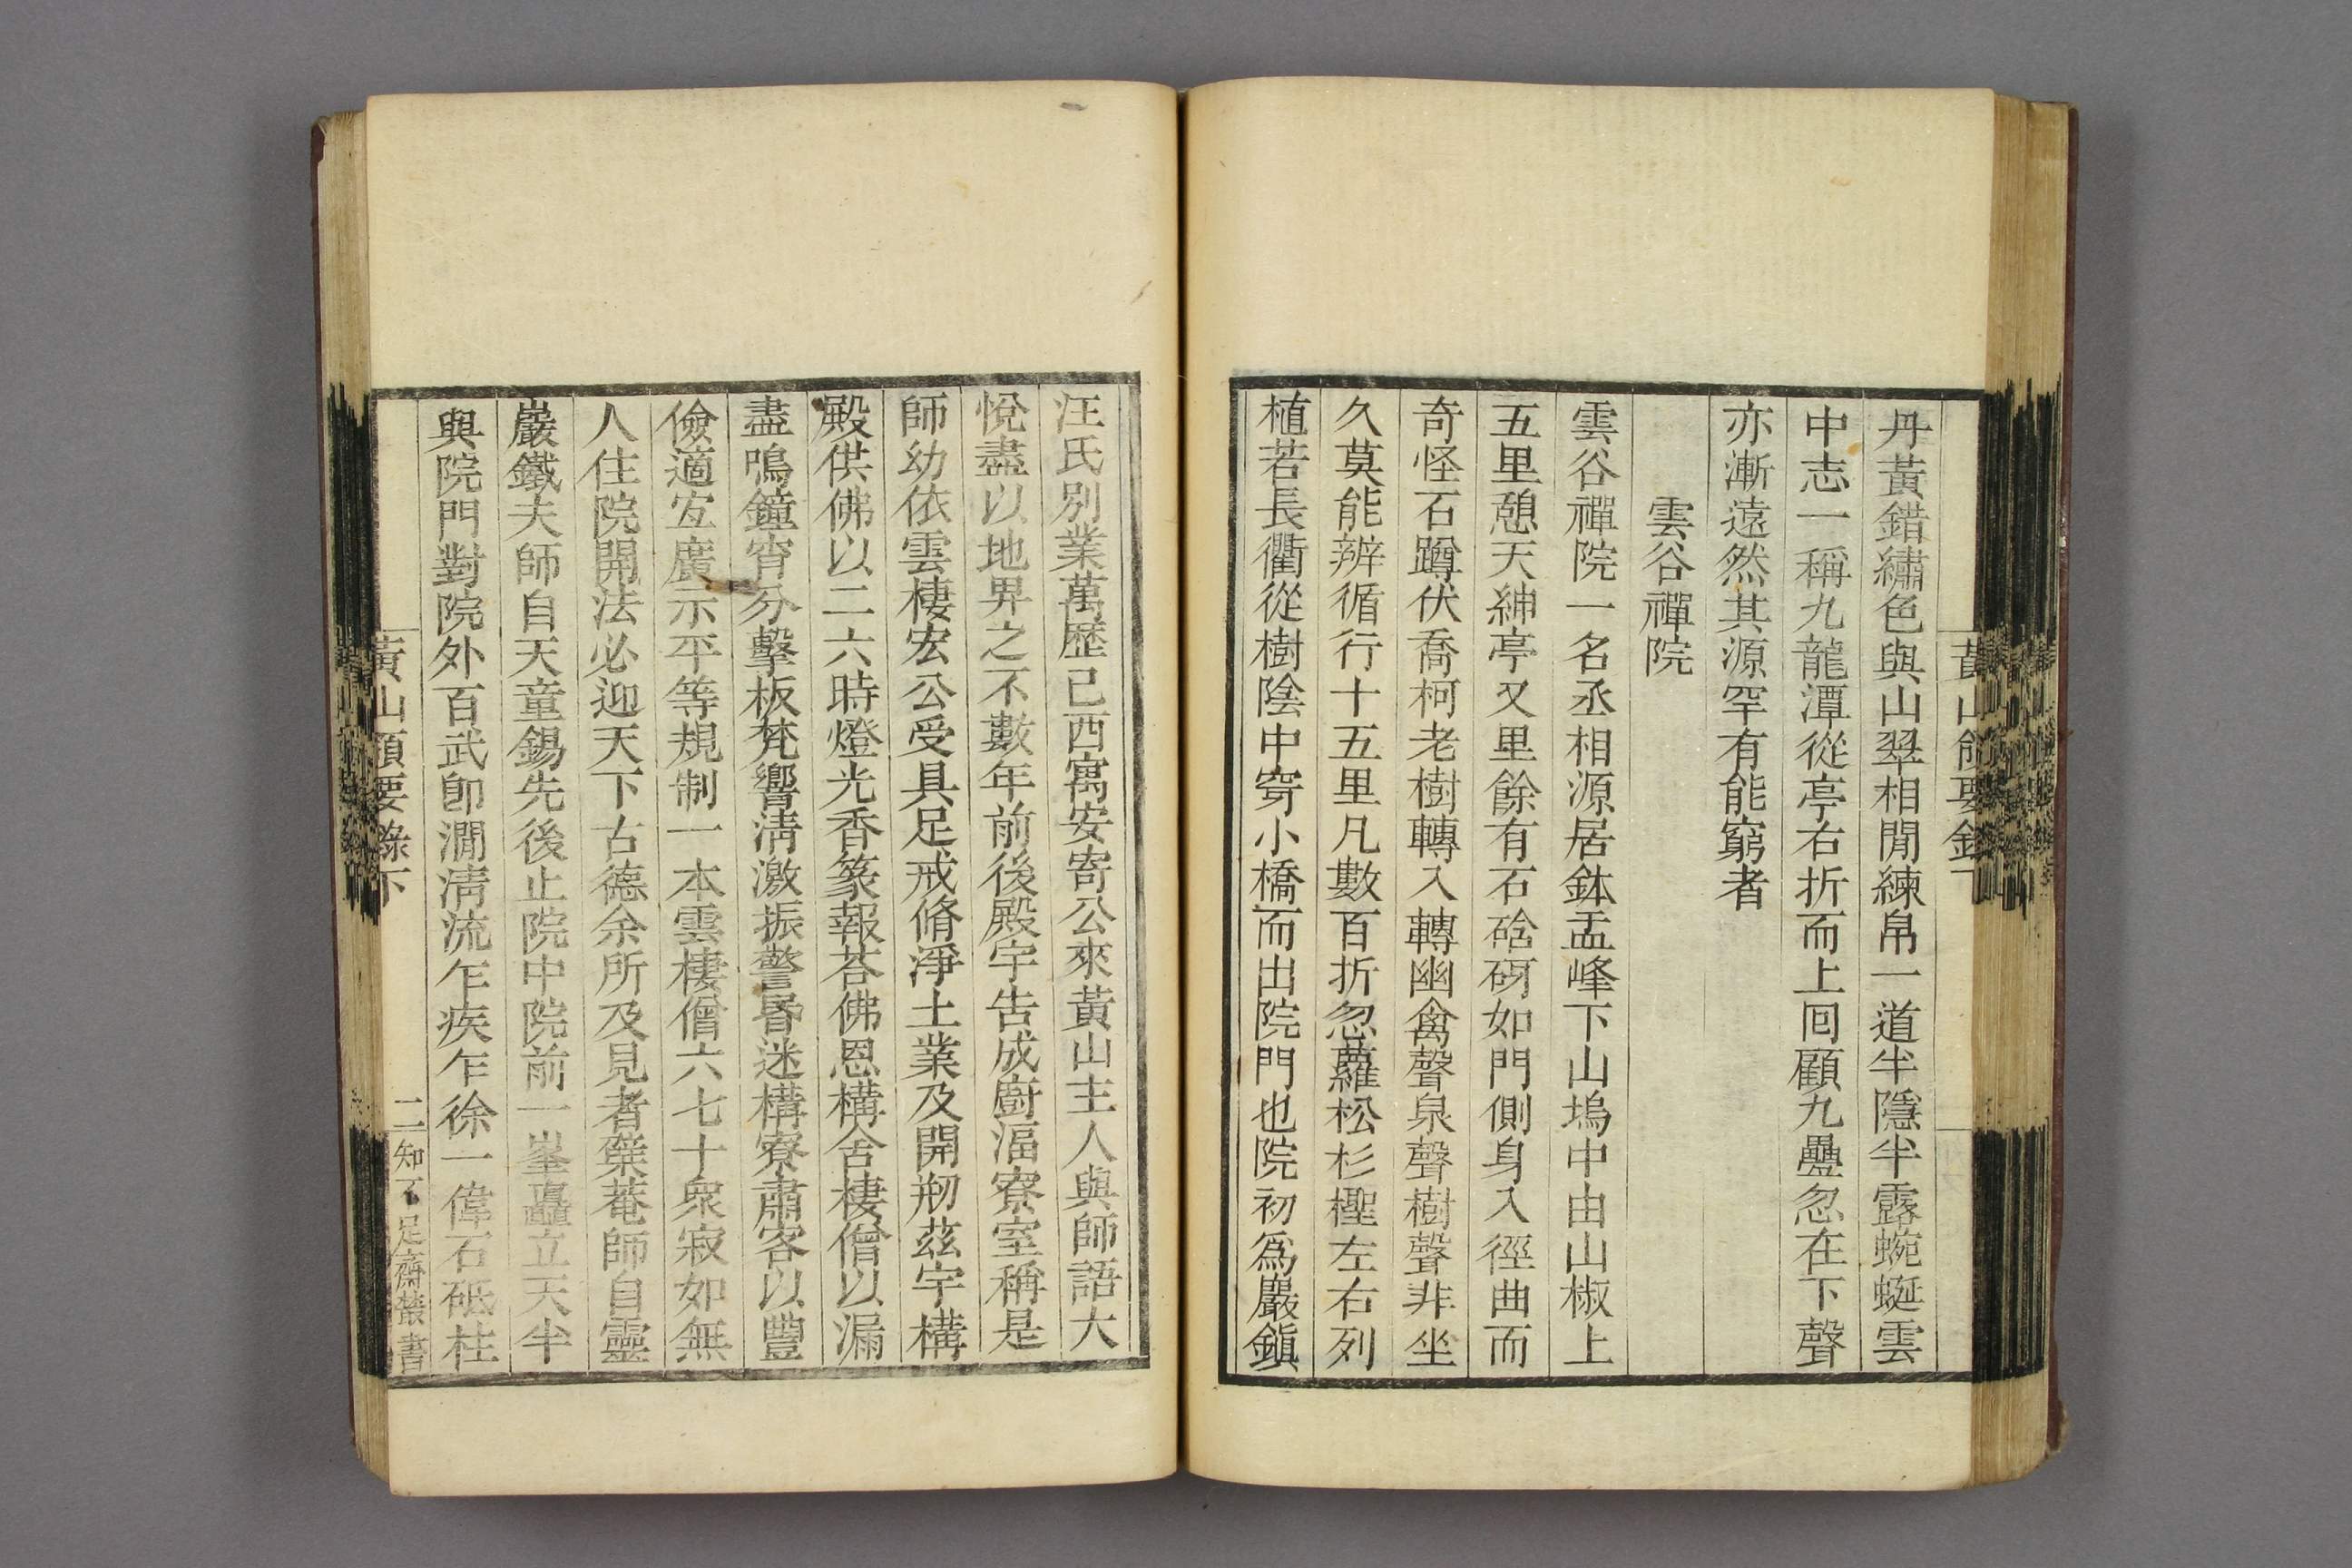 丹黃錯繡色與山翠相閒練帛一道半隱半露蜿蜒雲
中志一稱九龍潭從亭右折而上回顧九疊忽在下聲
亦漸遠然其源罕有能窮者
雲谷禪院
雲谷禪院一名丞相源居鉢盂峰下山塢中由山椒上
五里憩天紳亭又里餘有石硆砑如門側身入徑曲而
奇怪石蹲伏喬柯老樹轉入轉幽禽聲泉聲樹聲非坐
久莫能辨循行十五里凡數百折忽蘿松杉檉左右列
植若長衢從樹陰中穿小橋而出院門也院初爲巖鎭
汪氏別業萬歷己酉寓安寄公來黃山主人與師語大
悅盡以地畀之不數年前後殿宇告成廚湢寮室稱是
師幼依雲棲宏公受具足戒脩淨土業及開剏茲宇構
殿供佛以二六時燈光香篆報荅佛恩構舍棲僧以漏
盡鳴鐘宵分擊板梵響淸激振警昬迷構寮肅客以豐
儉適宐廣示平等規制一本雲棲僧六七十衆寂如無
人住院開法必迎天下古德余所及見者檗菴師自靈
巖鐵夫師自天童錫先後止院中院前一峯矗立天半
與院門對院外百武卽澗淸流乍疾乍徐一偉石砥柱
黃山領要錄下
二
知不足齋叢書